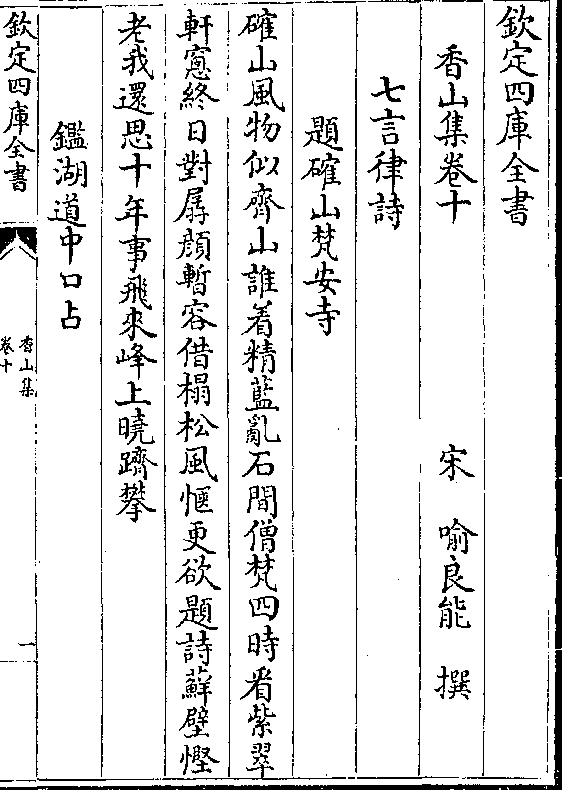 欽定四庫全書
香山集卷十
宋 喻良能 撰
七言律詩
題確山梵安寺
確山風物似齊山誰着精藍亂石間僧梵四時看紫翠
軒窻終日對孱顔暫容借榻松風愜更欲題詩蘚壁慳
老我還思十年事飛來峰上曉躋攀
鑑湖道中口占
欽定四庫全書
香山集
卷十
一